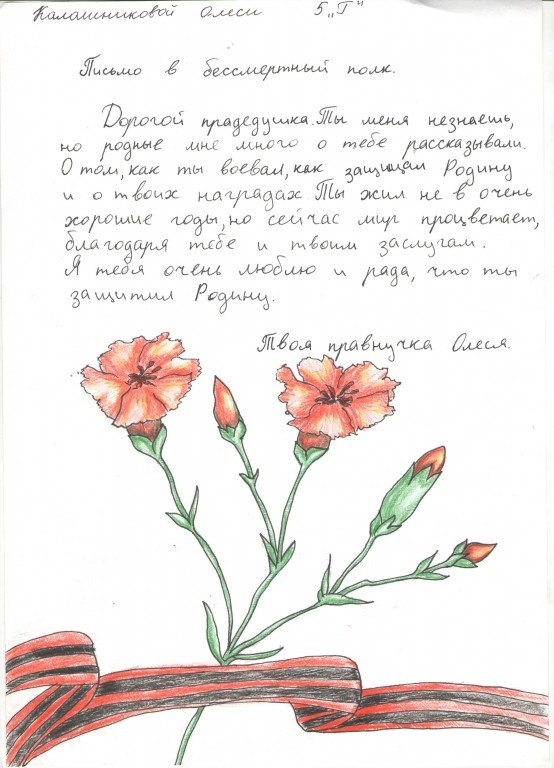 Калашниковой Олеси 5 „Г"
Письмо в бессмертный полк.
Дорогой прадедушка. Ты меня незнаешь,
но родные мне много о тебе рассказывали.
О том, как ты воевал, как защищал Родину
и о твоих наградах. Ты жил не в очень
хорошие годы, но сейчас мир процветает,
благодаря тебе и твоим заслугам.
Я тебя очень люблю и рада, что ты
защитил Родину.
Твоя правнучка Олеся.